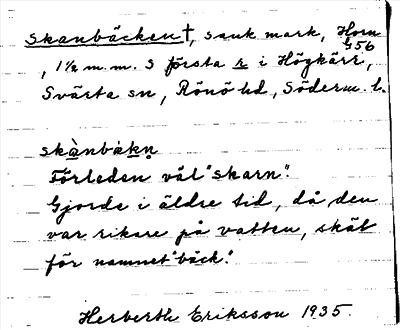 Skanbäcken†, sank mark, Horn
G56
, 1½ m.m. S första r i Högkärr,
Svärta sn, Rönö hd, Söderm. l.
skànbàkn̥
Förleden väl "skarn".
Gjorde i äldre tid, då den
var rikare på vatten, skäl
för namnet "bäck".
Herberth Eriksson 1935.